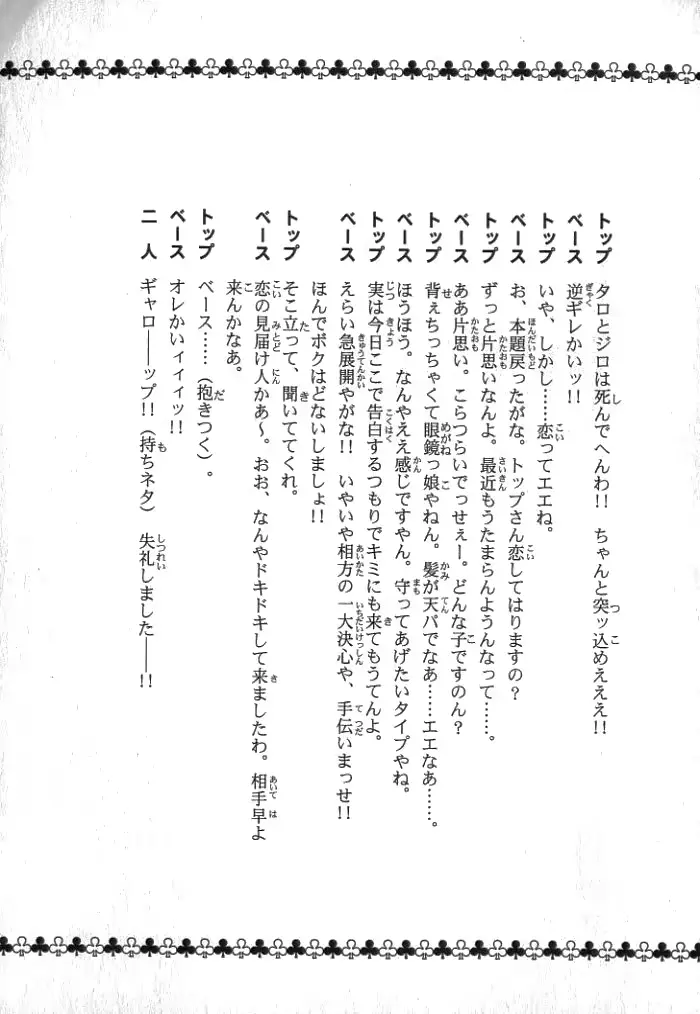 トップ　タロとジロは死んでへんわ!!　ちゃんと突ッ込めえええ!!
ベース　逆ギレかいッ!!
トップ　いや、しかし……恋ってエエね。
ベース　お、本題戻ったがな。トップさん恋してはりますの？
トップ　ずっと片思いなんよ。最近もうたまらんようんなって……。
ベース　ああ片思い。こらつらいでっせぇー。どんな子ですのん？
トップ　背ぇちっちゃくて眼鏡っ娘やねん。髪が天パでなあ……エエなあ……。
ベース　ほうほう。なんやええ感じですやん。守ってあげたいタイプやね。
トップ　実は今日ここで告白するつもりでキミにも来てもうてんよ。
ベース　えらい急展開やがな!!　いやいや相方の一大決心や、手伝いまっせ!!
ほんでボクはどないしましょ!!
トップ　そこ立って、聞いててくれ。
ベース　恋の見届け人かあ～。おお、なんやドキドキして来ましたわ。相手早よ
来んかなあ。
トップ　ベース……（抱きつく）。
ベース　オレかいィィィッ!!
二人　ギャロ――ップ!!（持ちネタ）　失礼しました――!!